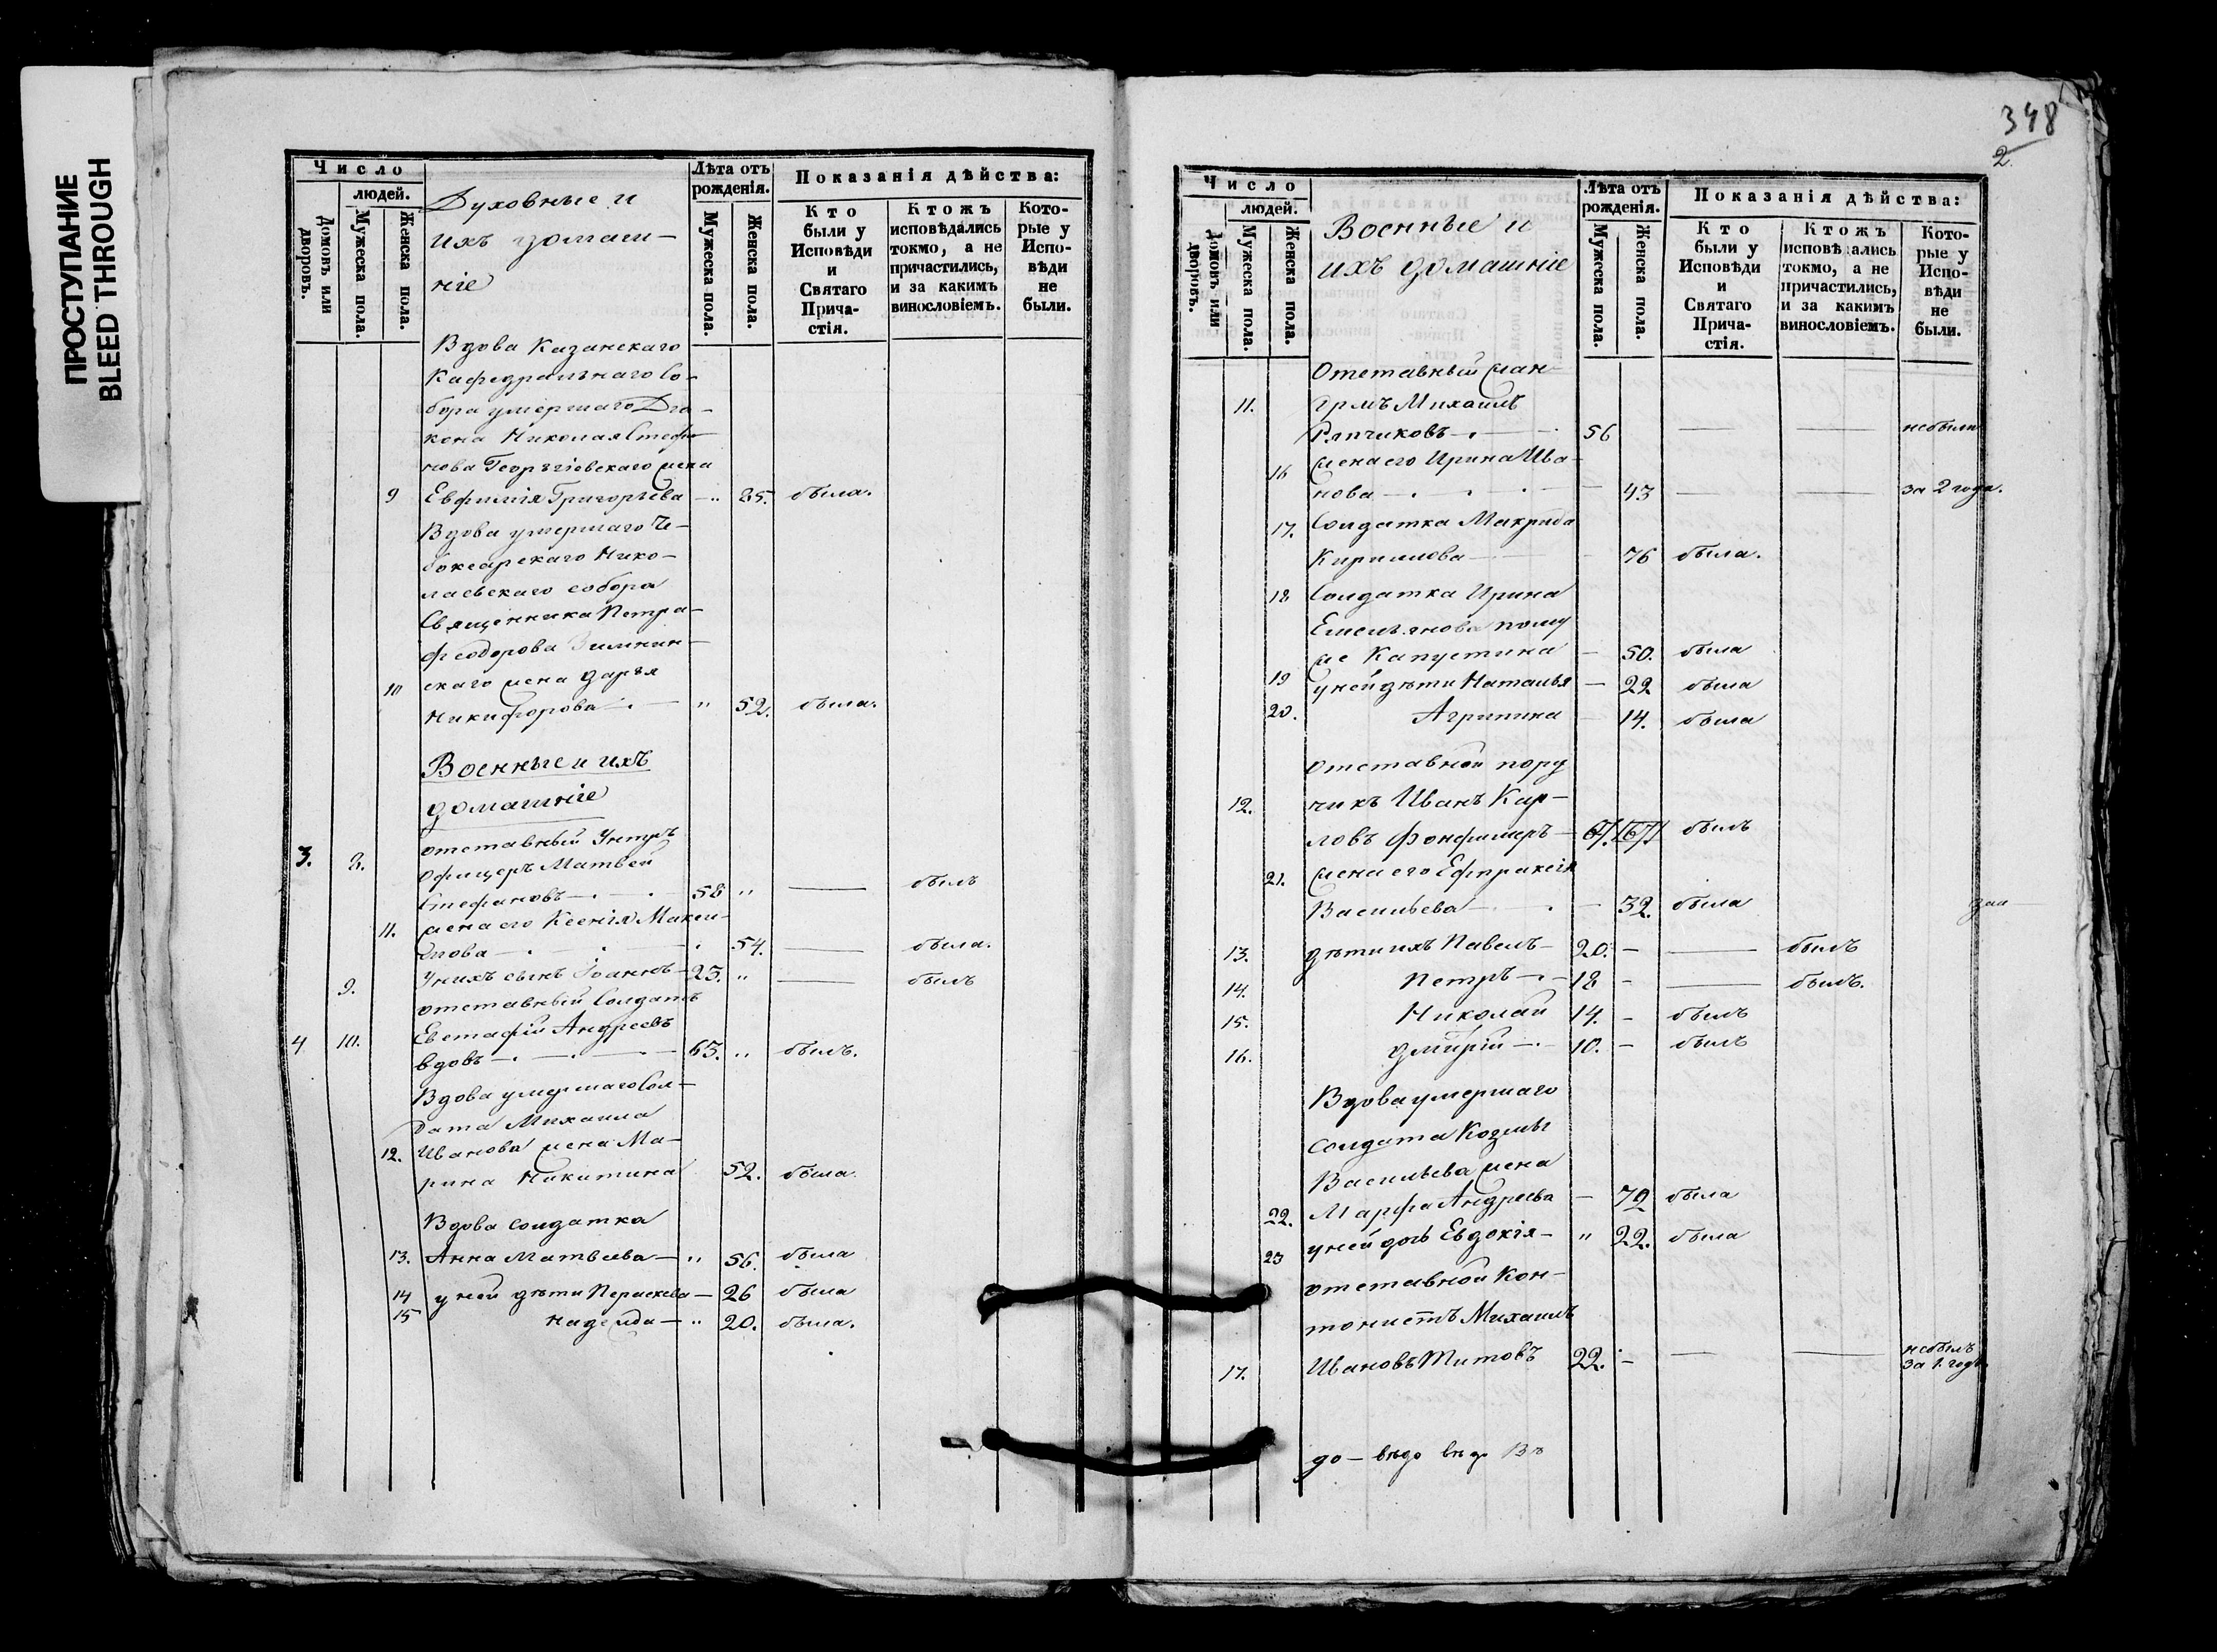 ПРОСТУПАНИЕ
BLEED THROUGH
Число
людей.
Домовъ или дворовъ.
Мужеска пола.
Женска пола.
Духовные и
ихъ домаш-
ніе
Лѣта отъ рожденія.
Мужеска пола.
Женска пола.
Показанія дѣйства:
Кто были у Исповѣди и Святаго Прича- стія.
Ктожъ исповѣдались токмо, а не причастились, и за какимъ винословіемъ.
Кото- рые у Испо- вѣди не были.
Вдова Казанскаго
Кафедральнаго Со-
бора умершаго Діа-
кона Николая Стефа-
нова Георгіевскаго жена
9 Евфимія Григорьева — " 85. была.
Вдова умершаго Че-
боксарскаго Нико-
лаевскаго собора
Священника Петра
Феодорова
10 скаго жена Дарья
Никифорова — " 52. была.
Военные и ихъ
домашніе
3. 8. отставный Унтеръ
Офицеръ Матвей
Стефановъ — 58 " — былъ
11. жена его Ксенія Макси-
мова — 54. — была.
9. У нихъ сынъ Іоаннъ — 23. " — былъ
отставный Солдатъ
4 10. Евстафій Андреевъ
вдовъ — 65. " былъ.
Вдова умершаго Сол-
дата Михаила
12. Иванова жена Ма-
рина Никитина 52. была.
Вдова солдатка
13. Анна Матвеева — " 56. была
14 у ней дѣти Параскева — 26 была
15 Надежда — " 20. была.
348
2.
Число
людей.
Домовъ или дворовъ.
Мужеска пола.
Женска пола.
Военные и
ихъ домашніе
Лѣта отъ рожденія.
Мужеска пола.
Женска пола.
Показанія дѣйства:
Кто были у Исповѣди и Святаго Прича- стія.
Ктожъ исповѣдались токмо, а не причастились, и за какимъ винословіемъ.
Кото- рые у Испо- вѣди не были.
Отставный жан-
11. Михаилъ
Ряпчиковъ — 56 — — небыли
16 жена его Ирина Ива-
нова — 43 — — за 2 года.
17. Солдатка Макрида
Кириллова — 76 была.
18 Солдатка Ирина
Емельянова по му
же Капустина — 50. была
19 у ней дѣти Наталья — 22 была
20. Агрипина — 14. была
отставной пору
12. чикъ Иванъ Кар-
ловъ — 67. 67 былъ
21. жена его Евпраксія
Васильева — 32. была
13. дѣти ихъ Павелъ — 20. — — былъ
14. Петръ — 18 — — былъ.
15. Николай 14. — былъ
16. Дмитрій — 10. — былъ
Вдова умершаго
солдата Козмы
Васильева жена
22. Марфа Андреева — 72 была
23 у ней дочь Евдокія — " 22. была
отставной Кон-
тонистъ Михаилъ
17. Ивановъ Титовъ 22. — — — небылъ
за 1. годъ.